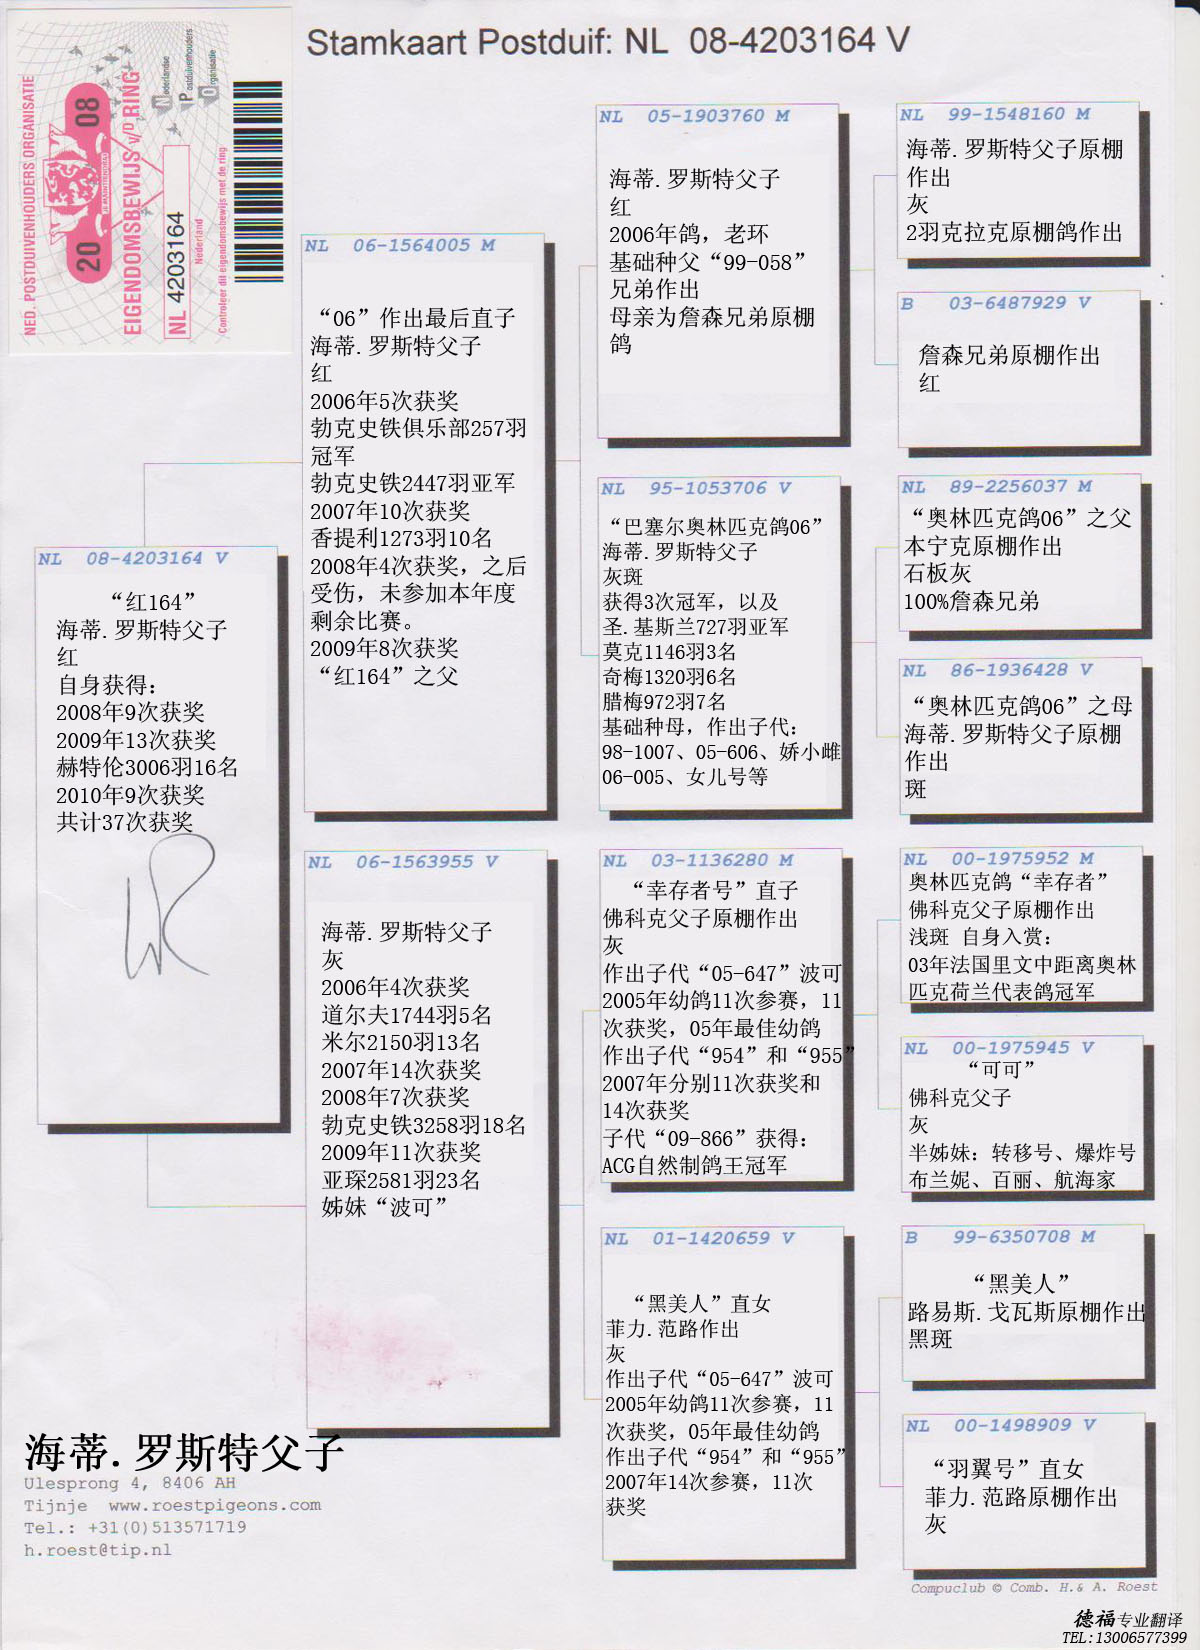 Stamkaart Postduif: NL 08-4203164 V
NED. POSTDUIVENHOUDERS ORGANISATIE
20 08
EIGENDOMSBEWIJS v/D RING
Nederlandse
Postduivenhouders
Organisatie
NL 4203164
Nederland
Controleer dit eigendomsbewijs met de ring
NL 08-4203164 V
“红164”
海蒂.罗斯特父子
红
自身获得：
2008年9次获奖
2009年13次获奖
赫特伦3006羽16名
2010年9次获奖
共计37次获奖
NL 06-1564005 M
“06”作出最后直子
海蒂.罗斯特父子
红
2006年5次获奖
勃克史铁俱乐部257羽
冠军
勃克史铁2447羽亚军
2007年10次获奖
香提利1273羽10名
2008年4次获奖，之后
受伤，未参加本年度
剩余比赛。
2009年8次获奖
“红164”之父
NL 06-1563955 V
海蒂.罗斯特父子
灰
2006年4次获奖
道尔夫1744羽5名
米尔2150羽13名
2007年14次获奖
2008年7次获奖
勃克史铁3258羽18名
2009年11次获奖
亚琛2581羽23名
姊妹“波可”
NL 05-1903760 M
海蒂.罗斯特父子
红
2006年鸽，老环
基础种父“99-058”
兄弟作出
母亲为詹森兄弟原棚
鸽
NL 95-1053706 V
“巴塞尔奥林匹克鸽06”
海蒂.罗斯特父子
灰斑
获得3次冠军，以及
圣.基斯兰727羽亚军
莫克1146羽3名
奇梅1320羽6名
腊梅972羽7名
基础种母，作出子代：
98-1007、05-606、娇小雌
06-005、女儿号等
NL 03-1136280 M
“幸存者号”直子
佛科克父子原棚作出
灰
作出子代“05-647”波可
2005年幼鸽11次参赛，11
次获奖，05年最佳幼鸽
作出子代“954”和“955”
2007年分别11次获奖和
14次获奖
子代“09-866”获得：
ACG自然制鸽王冠军
NL 01-1420659 V
“黑美人”直女
菲力.范路作出
灰
作出子代“05-647”波可
2005年幼鸽11次参赛，11
次获奖，05年最佳幼鸽
作出子代“954”和“955”
2007年14次参赛，11次
获奖
NL 99-1548160 M
海蒂.罗斯特父子原棚
作出
灰
2羽克拉克原棚鸽作出
B 03-6487929 V
詹森兄弟原棚作出
红
NL 89-2256037 M
“奥林匹克鸽06”之父
本宁克原棚作出
石板灰
100%詹森兄弟
NL 86-1936428 V
“奥林匹克鸽06”之母
海蒂.罗斯特父子原棚
作出
斑
NL 00-1975952 M
奥林匹克鸽“幸存者”
佛科克父子原棚作出
浅斑 自身入赏：
03年法国里文中距离奥林
匹克荷兰代表鸽冠军
NL 00-1975945 V
“可可”
佛科克父子
灰
半姊妹：转移号、爆炸号
布兰妮、百丽、航海家
B 99-6350708 M
“黑美人”
路易斯.戈瓦斯原棚作出
黑斑
NL 00-1498909 V
“羽翼号”直女
菲力.范路原棚作出
灰
海蒂.罗斯特父子
Ulesprong 4, 8406 AH
Tijnje www.roestpigeons.com
Tel.: +31(0)513571719
h.roest@tip.nl
Compuclub © Comb. H.& A. Roest
德福专业翻译
TEL:13006577399